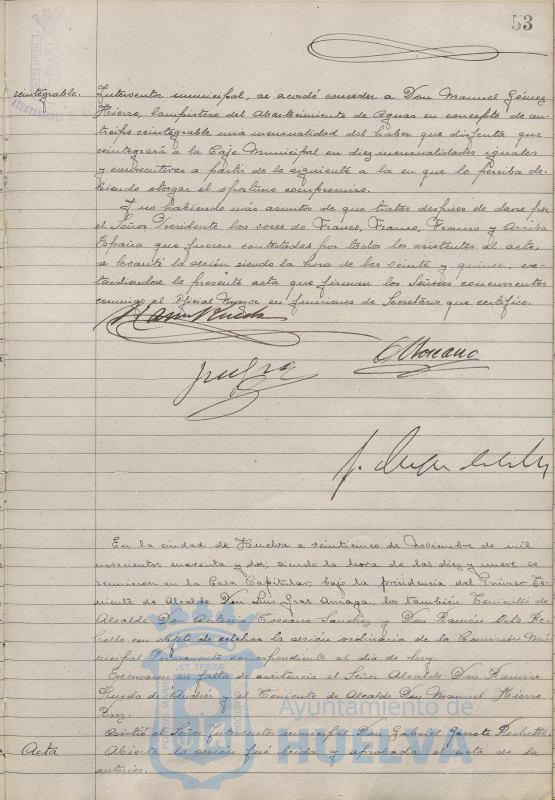 53
reintegrable. Interventor municipal, se acordó conceder a Don Manuel Gómez
Hierro, lampistero del Abastecimiento de Aguas en concepto de an-
ticipo reintegrable una mensualidad del haber que disfruta que
reintegrará a la Caja Municipal en diez mensualidades iguales
y consecutivas a partir de la siguiente a la en que lo perciba de-
biendo otorgar el oportuno compromiso.
Y no habiendo más asuntos de que tratar despues de darse por
el Señor Presidente las voces de Franco, Franco, Franco y Arriba
España que fueron contestadas por todos los asistentes al acto,
se levantó la sesión siendo la hora de las veinte y quince, ex-
tendiendose la presente acta que firman los Señores concurrentes
conmigo el Oficial Mayor en funciones de Secretario que certifico.
En la ciudad de Huelva a veinticinco de Noviembre de mil
novecientos cuarenta y dos, siendo la hora de las diez y nueve se
reunieron en la Casa Capitular, bajo la presidencia del Primer Te-
niente de Alcalde Don Luis Gras Arriaga, los también Tenientes de
Alcalde Don Antonio Toscano Sanchez y Don Ramón
con objeto de celebrar la sesión ordinaria de la Comisión Mu-
nicipal Permanente correspondiente al dia de hoy.
Excusaron su falta de asistencia el Señor Alcalde Don Ramiro
Rueda de Andrés y el Teniente de Alcalde Don Manuel Hierro
Asistió el Señor Interventor municipal Don Gabriel Garrote
Acta Abierta la sesión fué leida y aprobada el acta de la
anterior.
Ayuntamiento de
HUELVA